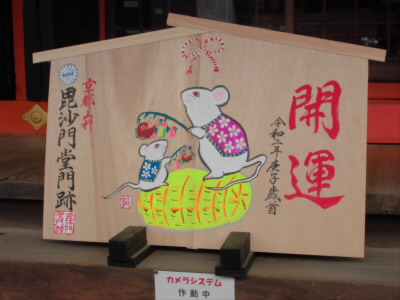 開運
令和二年庚子歳首
京都山科
毘沙門堂門跡
カメラシステム
作動中